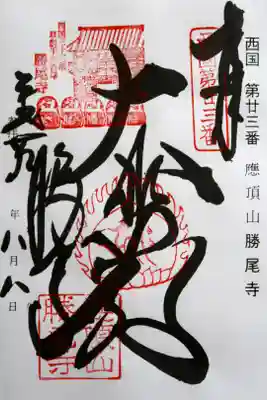 西国 第廿三番 應頂山 勝尾寺
奉
西国第廿三番
大悲閣
勝尾寺
年 八月 八日
應頂山
勝尾寺